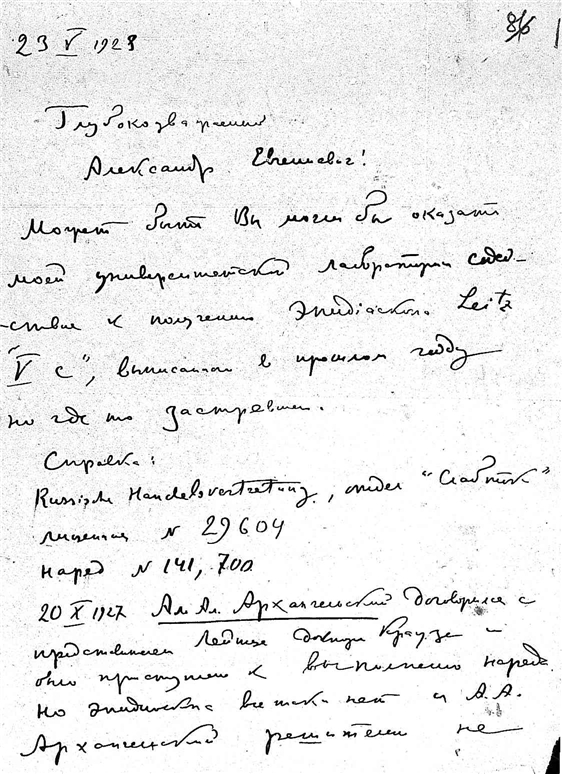 86
23 V 1928
Глубокоуважаемый
Александр Евгениевич!
Может быть Вы могли бы оказать
моей университетской лаборатории содей-
-ствие к получению Эпидіаскопа Leitz
"V c", выписанном в прошлом году
но где то застрявшем.
Справка:
Russische Handelsvertretung, отдел "
лицензия N 29604
наряд N 141,700
20 X 1927 Ал. Ал. Архангельский договорился с
представителем Лейтца Краузе и
оно приступило к выполнению наряда.
Но эпидиаскопа все таки нет и А.А.
Архангельский решительно не